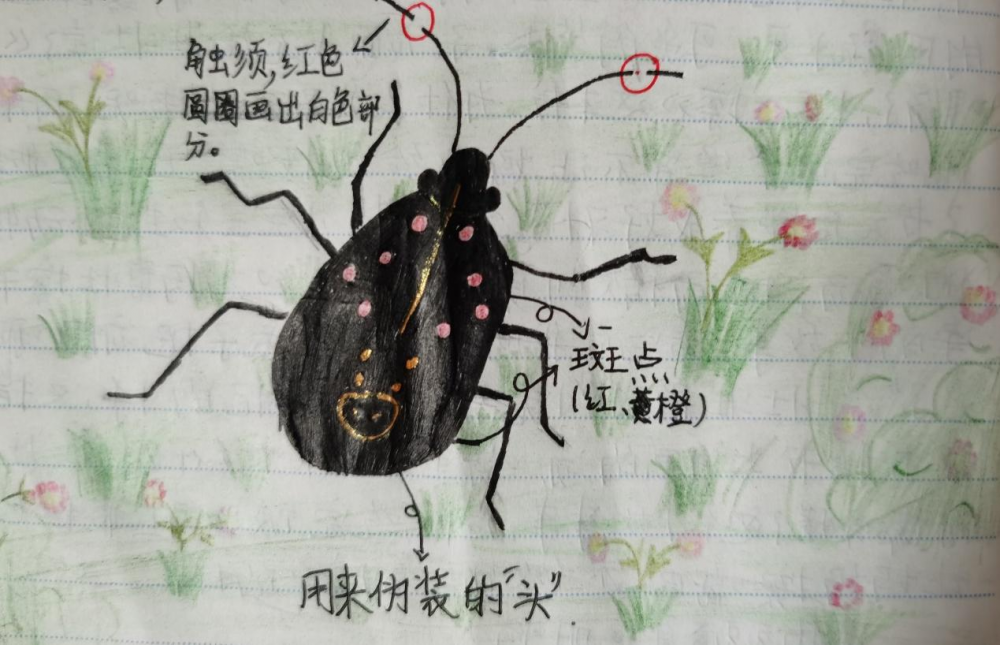 触须,红色
圆圈画出白色部
分。
斑点
(红、黄橙)
用来伪装的“头”.